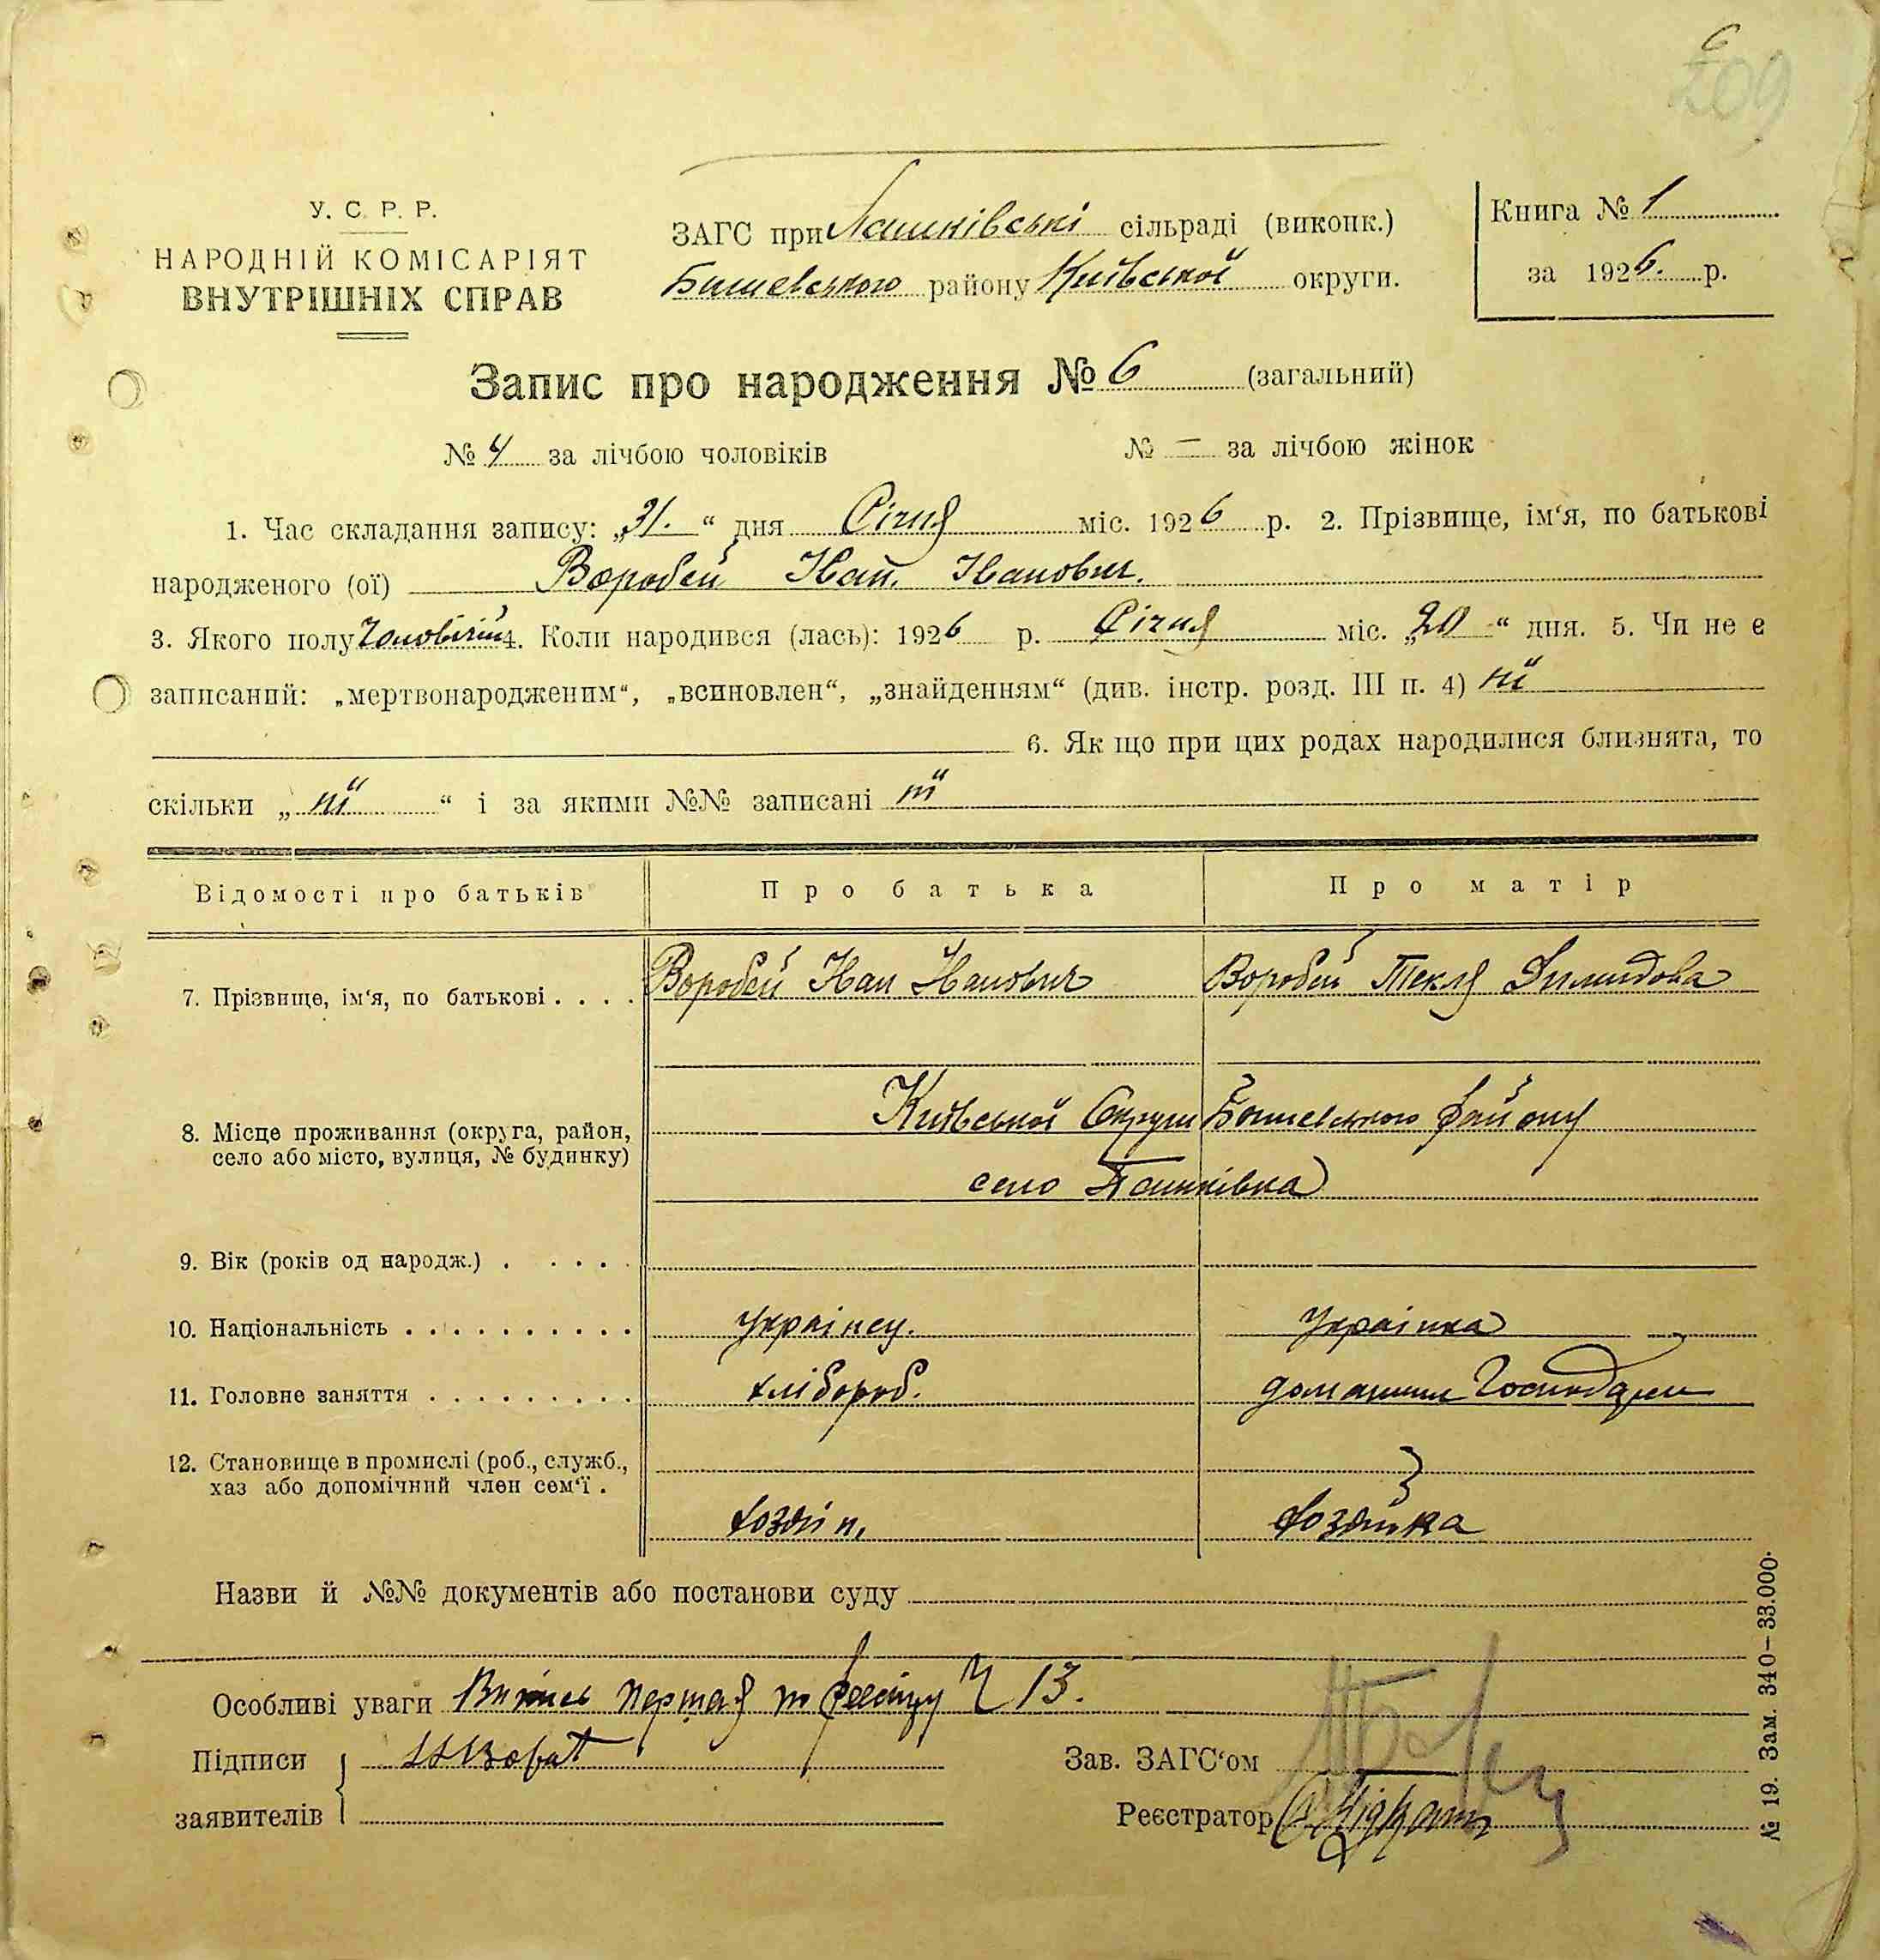 6
209
У. С. Р. Р.
НАРОДНІЙ КОМІСАРІЯТ
ВНУТРІШНІХ СПРАВ
ЗАГС при сільраді (виконк.)
Бишевського району Київської округи.
Книга № 1
за 1926 р.
Запис про народження № 6 (загальний)
№ 4 за лічбою чоловіків № — за лічбою жінок
1. Час складання запису: „31.“ дня Січня міс. 1926 р. 2. Прізвище, ім‘я, по батькові
народженого (ої) Воробей Іван Іванович.
3. Якого полу Чоловічий 4. Коли народився (лась): 1926 р. Січня міс. „20“ дня. 5. Чи не є
записаний: „мертвонародженим“, „всиновлен“, „знайденням“ (див. інстр. розд. III п. 4) ні
6. Як що при цих родах народилися близнята, то
скільки „ ні “ і за якими №№ записані ні
Відомості про батьків Про батька Про матір
7. Прізвище, ім‘я, по батькові . . . . Воробей Іван Іванович Воробей Текля
8. Місце проживання (округа, район,
село або місто, вулиця, № будинку)
Київської Округи Бишевського району
село
9. Вік (років од народж.) . . . . .
10. Національність . . . . . . . . . . українец. українка
11. Головне заняття . . . . . . . . . хлібороб. домашнє
12. Становище в промислі (роб., служб.,
хаз або допомічний член сем‘ї .
хозяін. хозяйка
Назви й №№ документів або постанови суду
Особливі уваги 13.
Підписи
заявителів
Зав. ЗАГС‘ом
Реєстратор
№ 19. Зам. 340–33.000.